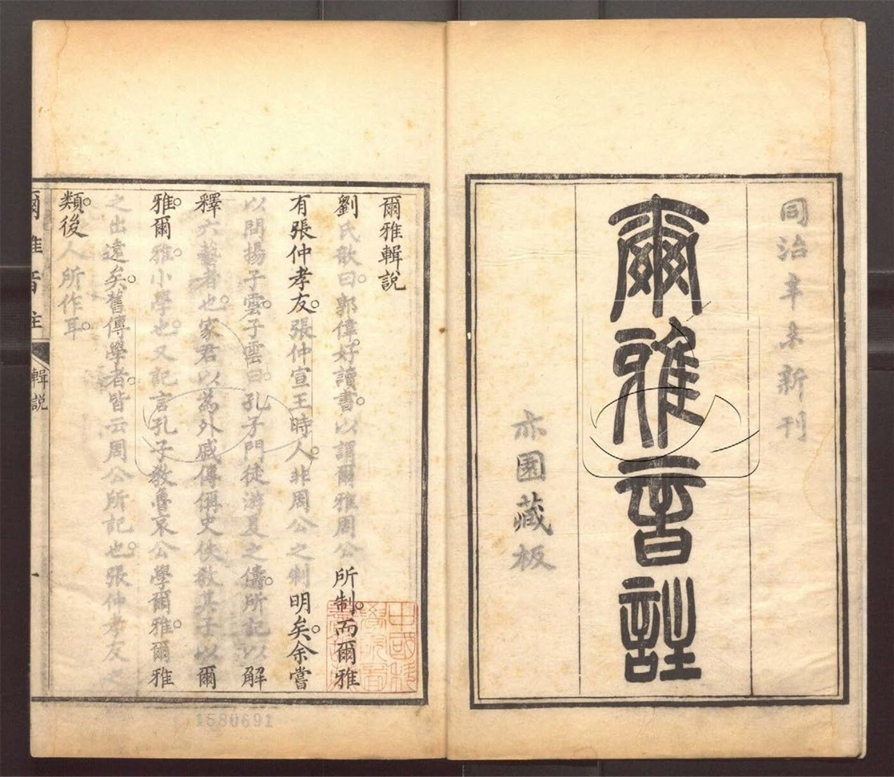 同治辛未新刊
爾雅音註
亦園藏板
爾雅輯說
劉氏歆曰郭偉好讀書。以謂爾雅周公所制。而爾雅
有張仲孝友。張仲宣王時人。非周公之制明矣。余嘗
以問揚子雲。子雲曰。孔子門徒游夏之儔。所記以解
釋六藝者也。家君以為外戚傳稱史佚教其子以爾
雅。爾雅小學也。又記言孔子教魯哀公學爾雅。爾雅
之出遠矣。舊傳學者。皆云周公所記也。張仲孝友之
類。後人所作耳。
爾雅音註
輯說
一
1580691